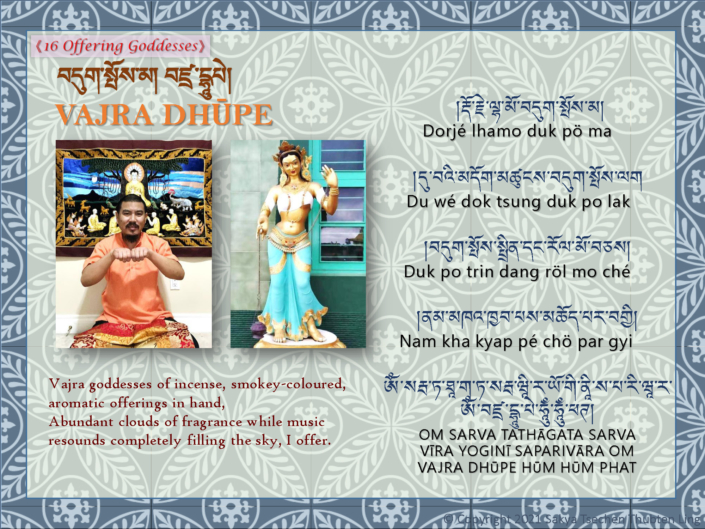 《16 Offering Goddesses》
བདུག་སྤོས་མ། བཛྲ་དྷཱུཔེ།
VAJRA DHŪPE
།རྡོ་རྗེ་ལྷ་མོ་བདུག་སྤོས་མ།
Dorjé lhamo duk pö ma
།དུ་བའི་མདོག་མཚུངས་བདུག་སྤོས་ལག
Du wé dok tsung duk po lak
།བདུག་སྤོས་སྤྲིན་དང་རོལ་མོ་བཅས།
Duk po trin dang röl mo ché
།ནམ་མཁའ་ཁྱབ་པས་མཆོད་པར་བགྱི།
Nam kha kyap pé chö par gyi
Vajra goddesses of incense, smokey-coloured,
aromatic offerings in hand,
Abundant clouds of fragrance while music
resounds completely filling the sky, I offer.
ཨོཾ་སརྦ་ཏ་ཐཱ་ག་ཏ་སརྦ་ཝཱི་ར་ཡོ་གི་ནཱི་ས་པ་རི་ཝཱ་ར་
ཨོཾ་བཛྲ་དྷཱུ་པེ་ཧཱུྃ་ཧཱུྃ་ཕཊ།
OM SARVA TATHĀGATA SARVA
VĪRA YOGINĪ SAPARIVĀRA OM
VAJRA DHŪPE HŪM HŪM PHAT
© Copyright 2021 Sakya Tsechen Thubten Ling